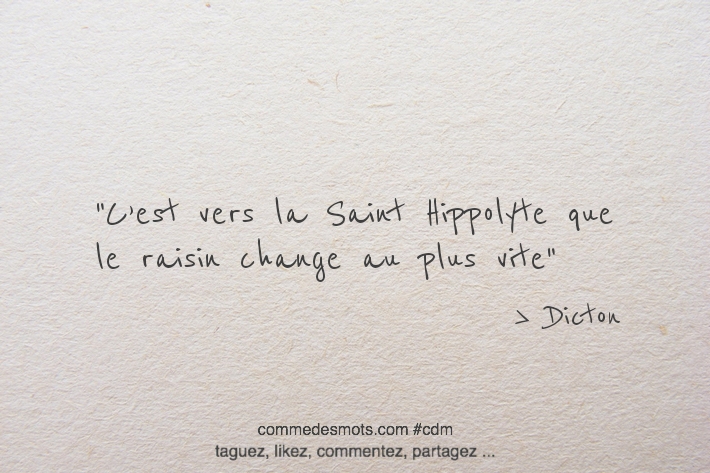 "C'est vers la Saint Hippolyte que
le raisin change au plus vite"
> Dicton
commedesmots.com #cdm
taguez, likez, commentez, partagez ...